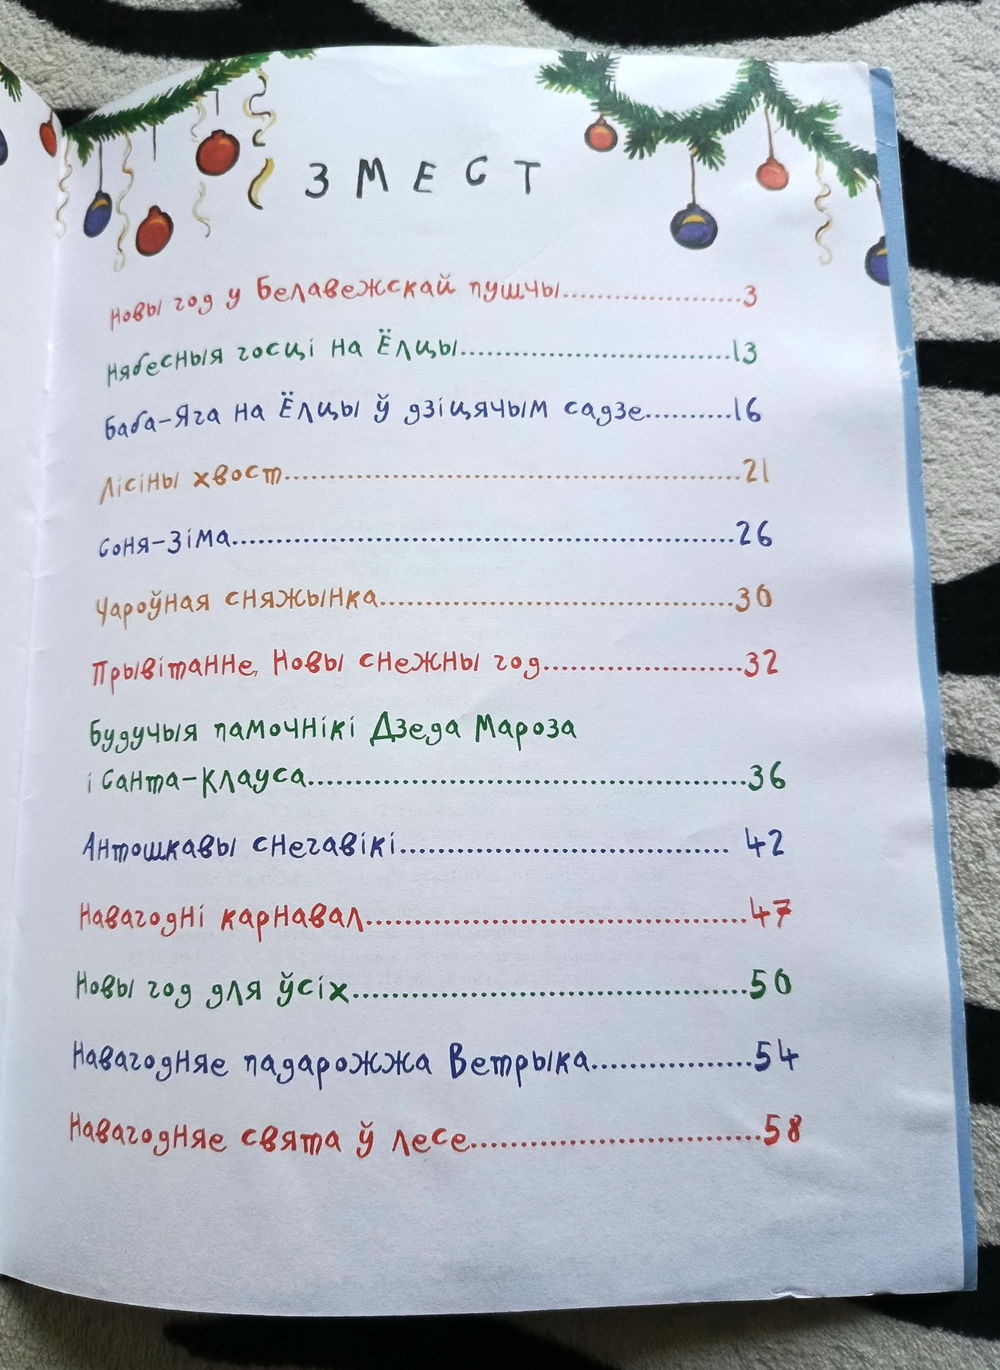 ЗМЕСТ
Новы год у Белавежскай пушчы.......................3
Нябесныя госці на Ёлцы.......................13
Баба-Яга на Ёлцы ў дзіцячым садзе..........16
Лісіны хвост.......................21
Соня-Зіма.......................26
Чароўная сняжынка.......................30
Прывітанне, Новы снежны год.......................32
Будучыя памочнікі Дзеда Мароза
і Санта-Клауса.......................36
Антошкавы снегавікі....................... 42
Навагодні карнавал.......................47
Новы год для ўсіх.......................50
Навагодняе падарожжа Ветрыка.......................54
Навагодняе свята ў лесе.......................58